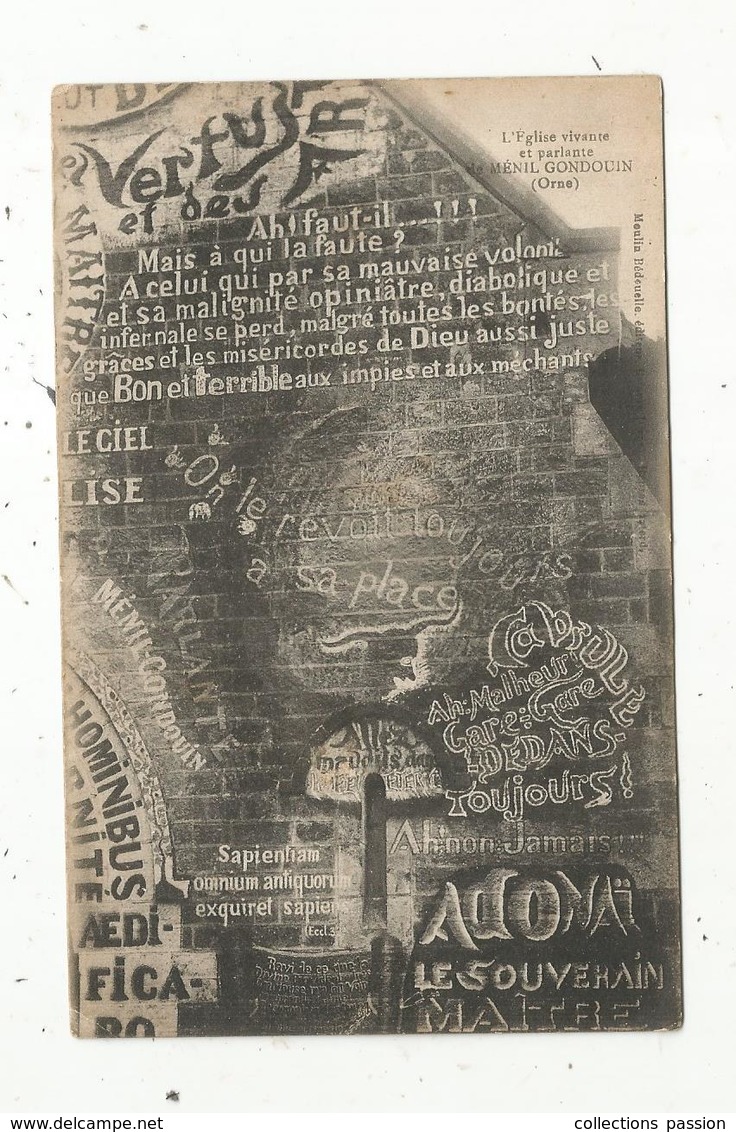 L'Église vivante
et parlante
de MÉNIL GONDOUIN
(Orne)
Moulin Bédouelle, édit
UT D
Vertus
et des
AR
MAITRE
Ah! faut-il .....!!!
Mais à qui la faute ?
A celui qui par sa mauvaise volonté
et sa malignité opiniâtre, diabolique et
infernale se perd, malgré toutes les bontés, les
grâces et les miséricordes de Dieu aussi juste
que Bon et terrible aux impies et aux méchants
LE CIEL
LISE
On le revoit toujours
a sa place
PARLANTE
MÉNIL-GONDOUIN
Ça brûle
Ah! Malheur!
Gare=Gare
DEDANS-
Toujours!
Allez
maudits dans
LE FEU ETERNEL
Ah! non=Jamais!!!
HOMINIBUS
AEDI-
FICA-
BO
Sapientiam
omnium antiquorum
exquiret sapiens
(Eccl. 3
ADONAÏ
LE SOUVERAIN
MAITRE
collections passion